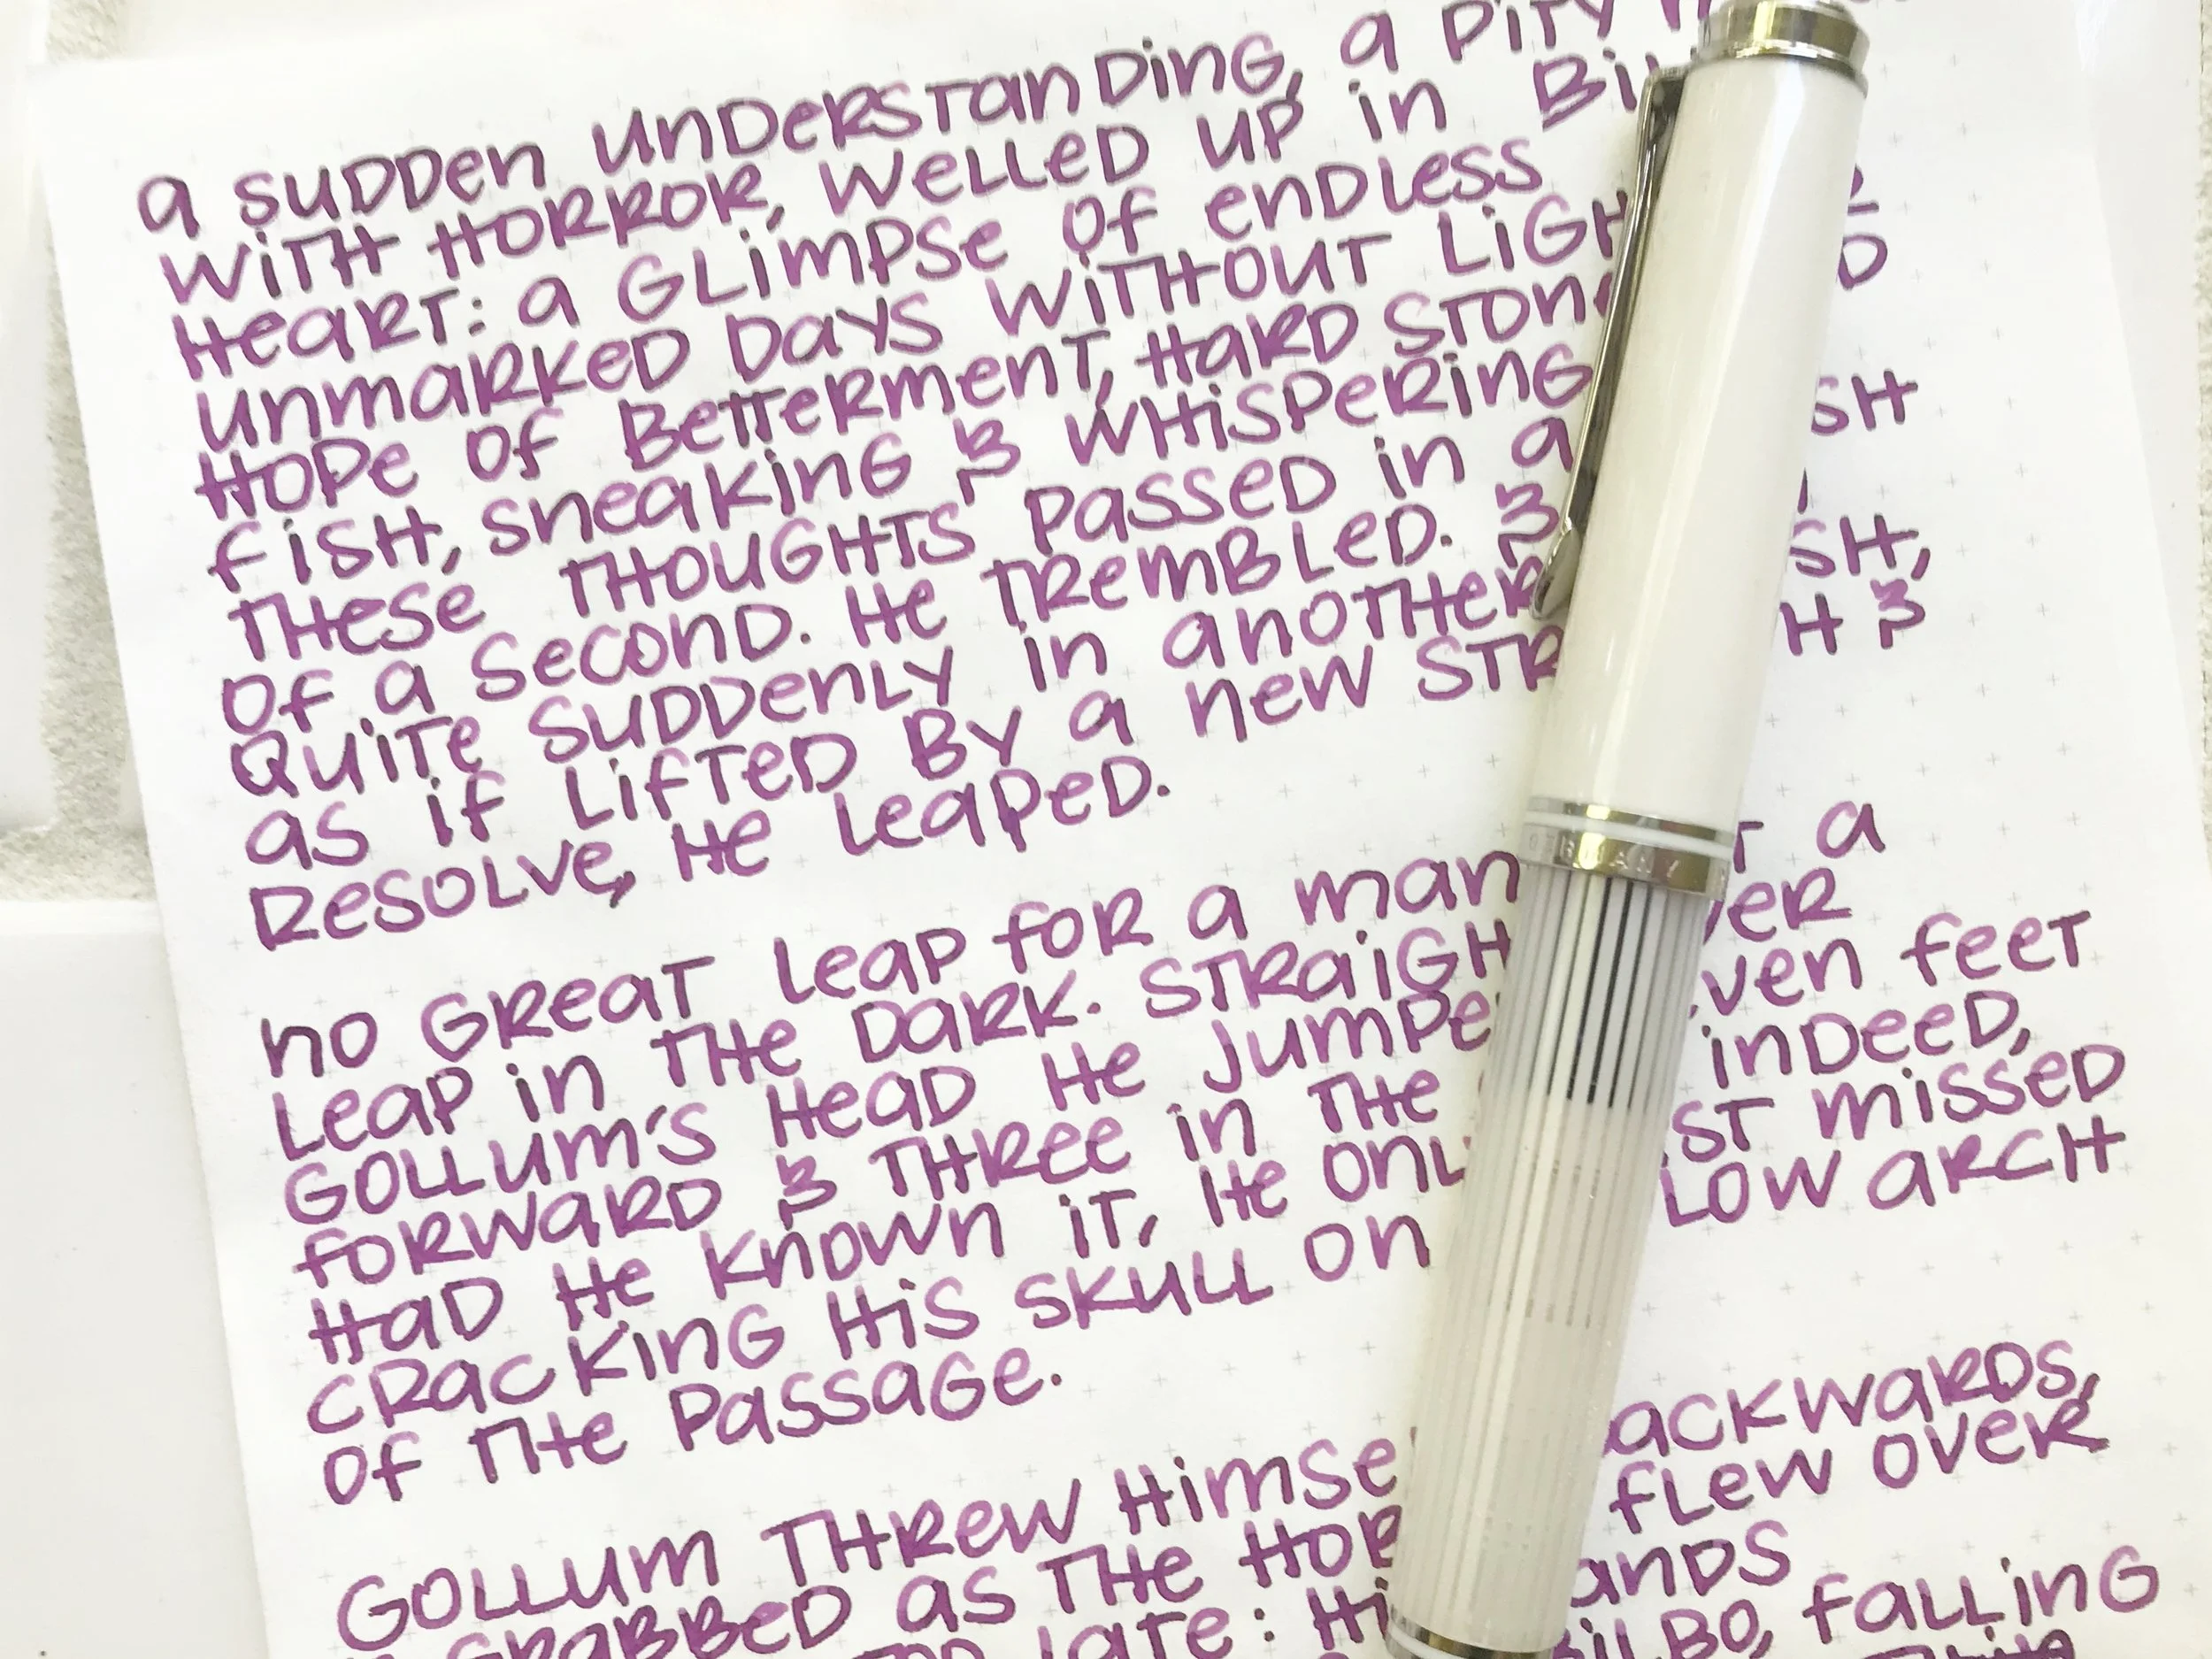 a SUDDen UnDeRSTanDinG, a PiTY
WiTH HORROR, WeLLeD UP in Bi
HeaRT: a GLimPSe Of enDLeSS
UnmaRKeD DaYS WiTHOUT LiGH D
HOPe Of BeTTeRmenT, HaRD STOne
fiSH, SneaKinG & WHiSPeRinG
THeSe THOUGHTS PaSSeD in a SH
Of a SeCOnD. He TRemBLeD. &
QUiTe SUDDenLY in anOTHeR SH,
aS if LifTeD BY a neW STR H &
ReSOLVe, He LeaPeD.
nO GReaT LeaP fOR a man T a
LeaP in THe DaRK. STRaiGH VeR
GOLLUm'S HeaD He JUmPe Ven feeT
fORWaRD & THRee in THe inDeeD,
HaD He KnOWn iT, He OnL ST miSSeD
CRaCKinG HiS SKULL On LOW aRCH
Of THe PaSSaGe.
GOLLUm THReW HimSe aCKWaRDS,
GRaBBeD aS THe HOB fLeW OVeR
LaTe: Hi anDS
BiLBO, faLLinG